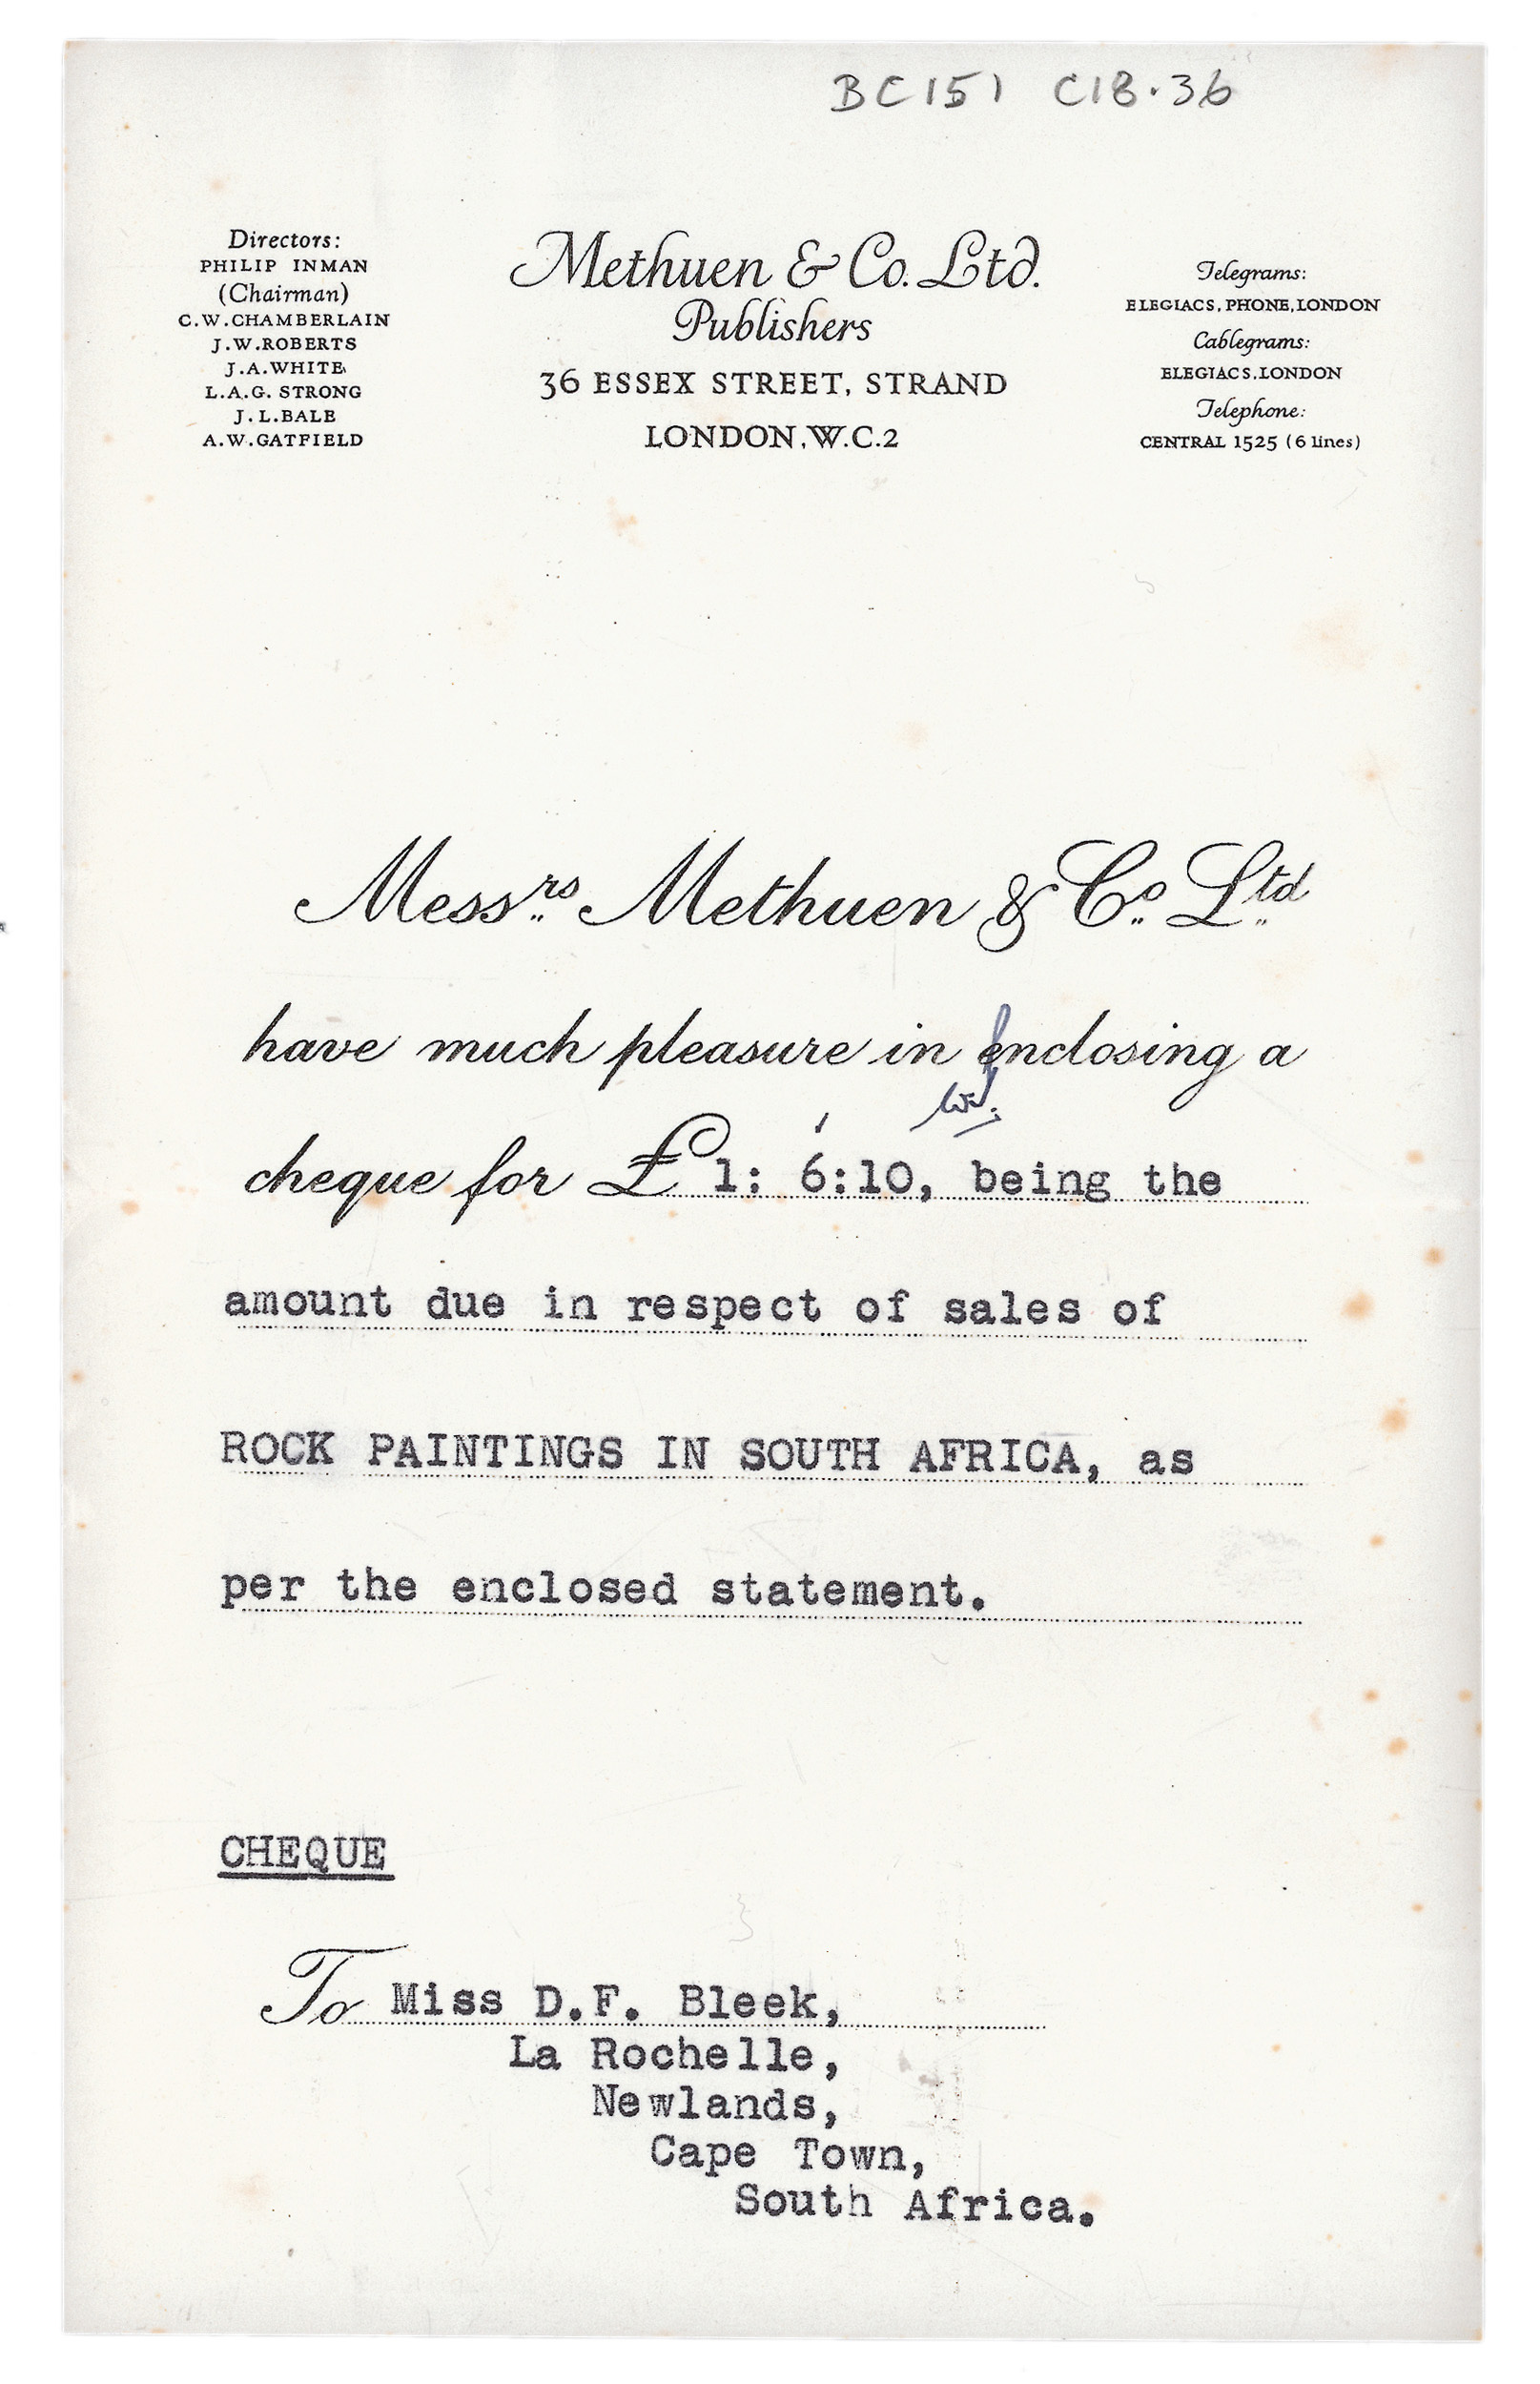 BC151 C18.36
Directors:
PHILIP INMAN
(Chairman)
C.W.CHAMBERLAIN
J.W.ROBERTS
J.A.WHITE
L.A.G. STRONG
J.L.BALE
A.W.GATFIELD
Methuen & Co. Ltd.
Publishers
36 ESSEX STREET, STRAND
LONDON, W.C.2
Telegrams:
ELEGIACS, PHONE, LONDON
Cablegrams:
ELEGIACS, LONDON
Telephone:
CENTRAL 1525 (6 lines)
Messrs Methuen & Co Ltd
have much pleasure in enclosing a
cheque for £ 1: 6:10, being the
amount due in respect of sales of
ROCK PAINTINGS IN SOUTH AFRICA, as
per the enclosed statement.
CHEQUE
To Miss D.F. Bleek,
La Rochelle,
Newlands,
Cape Town,
South Africa.